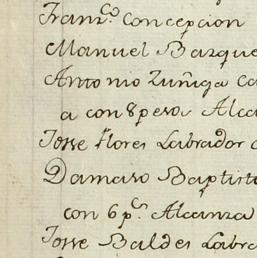 Fran.co Concepcion
Manuel Bazque
Antonio Zuñiga Ca
a con 8 pesos Alca
Josse Flores Labrador
Damaso Baptist
con 6 p.s Alcanza
Josse Baldes Labra